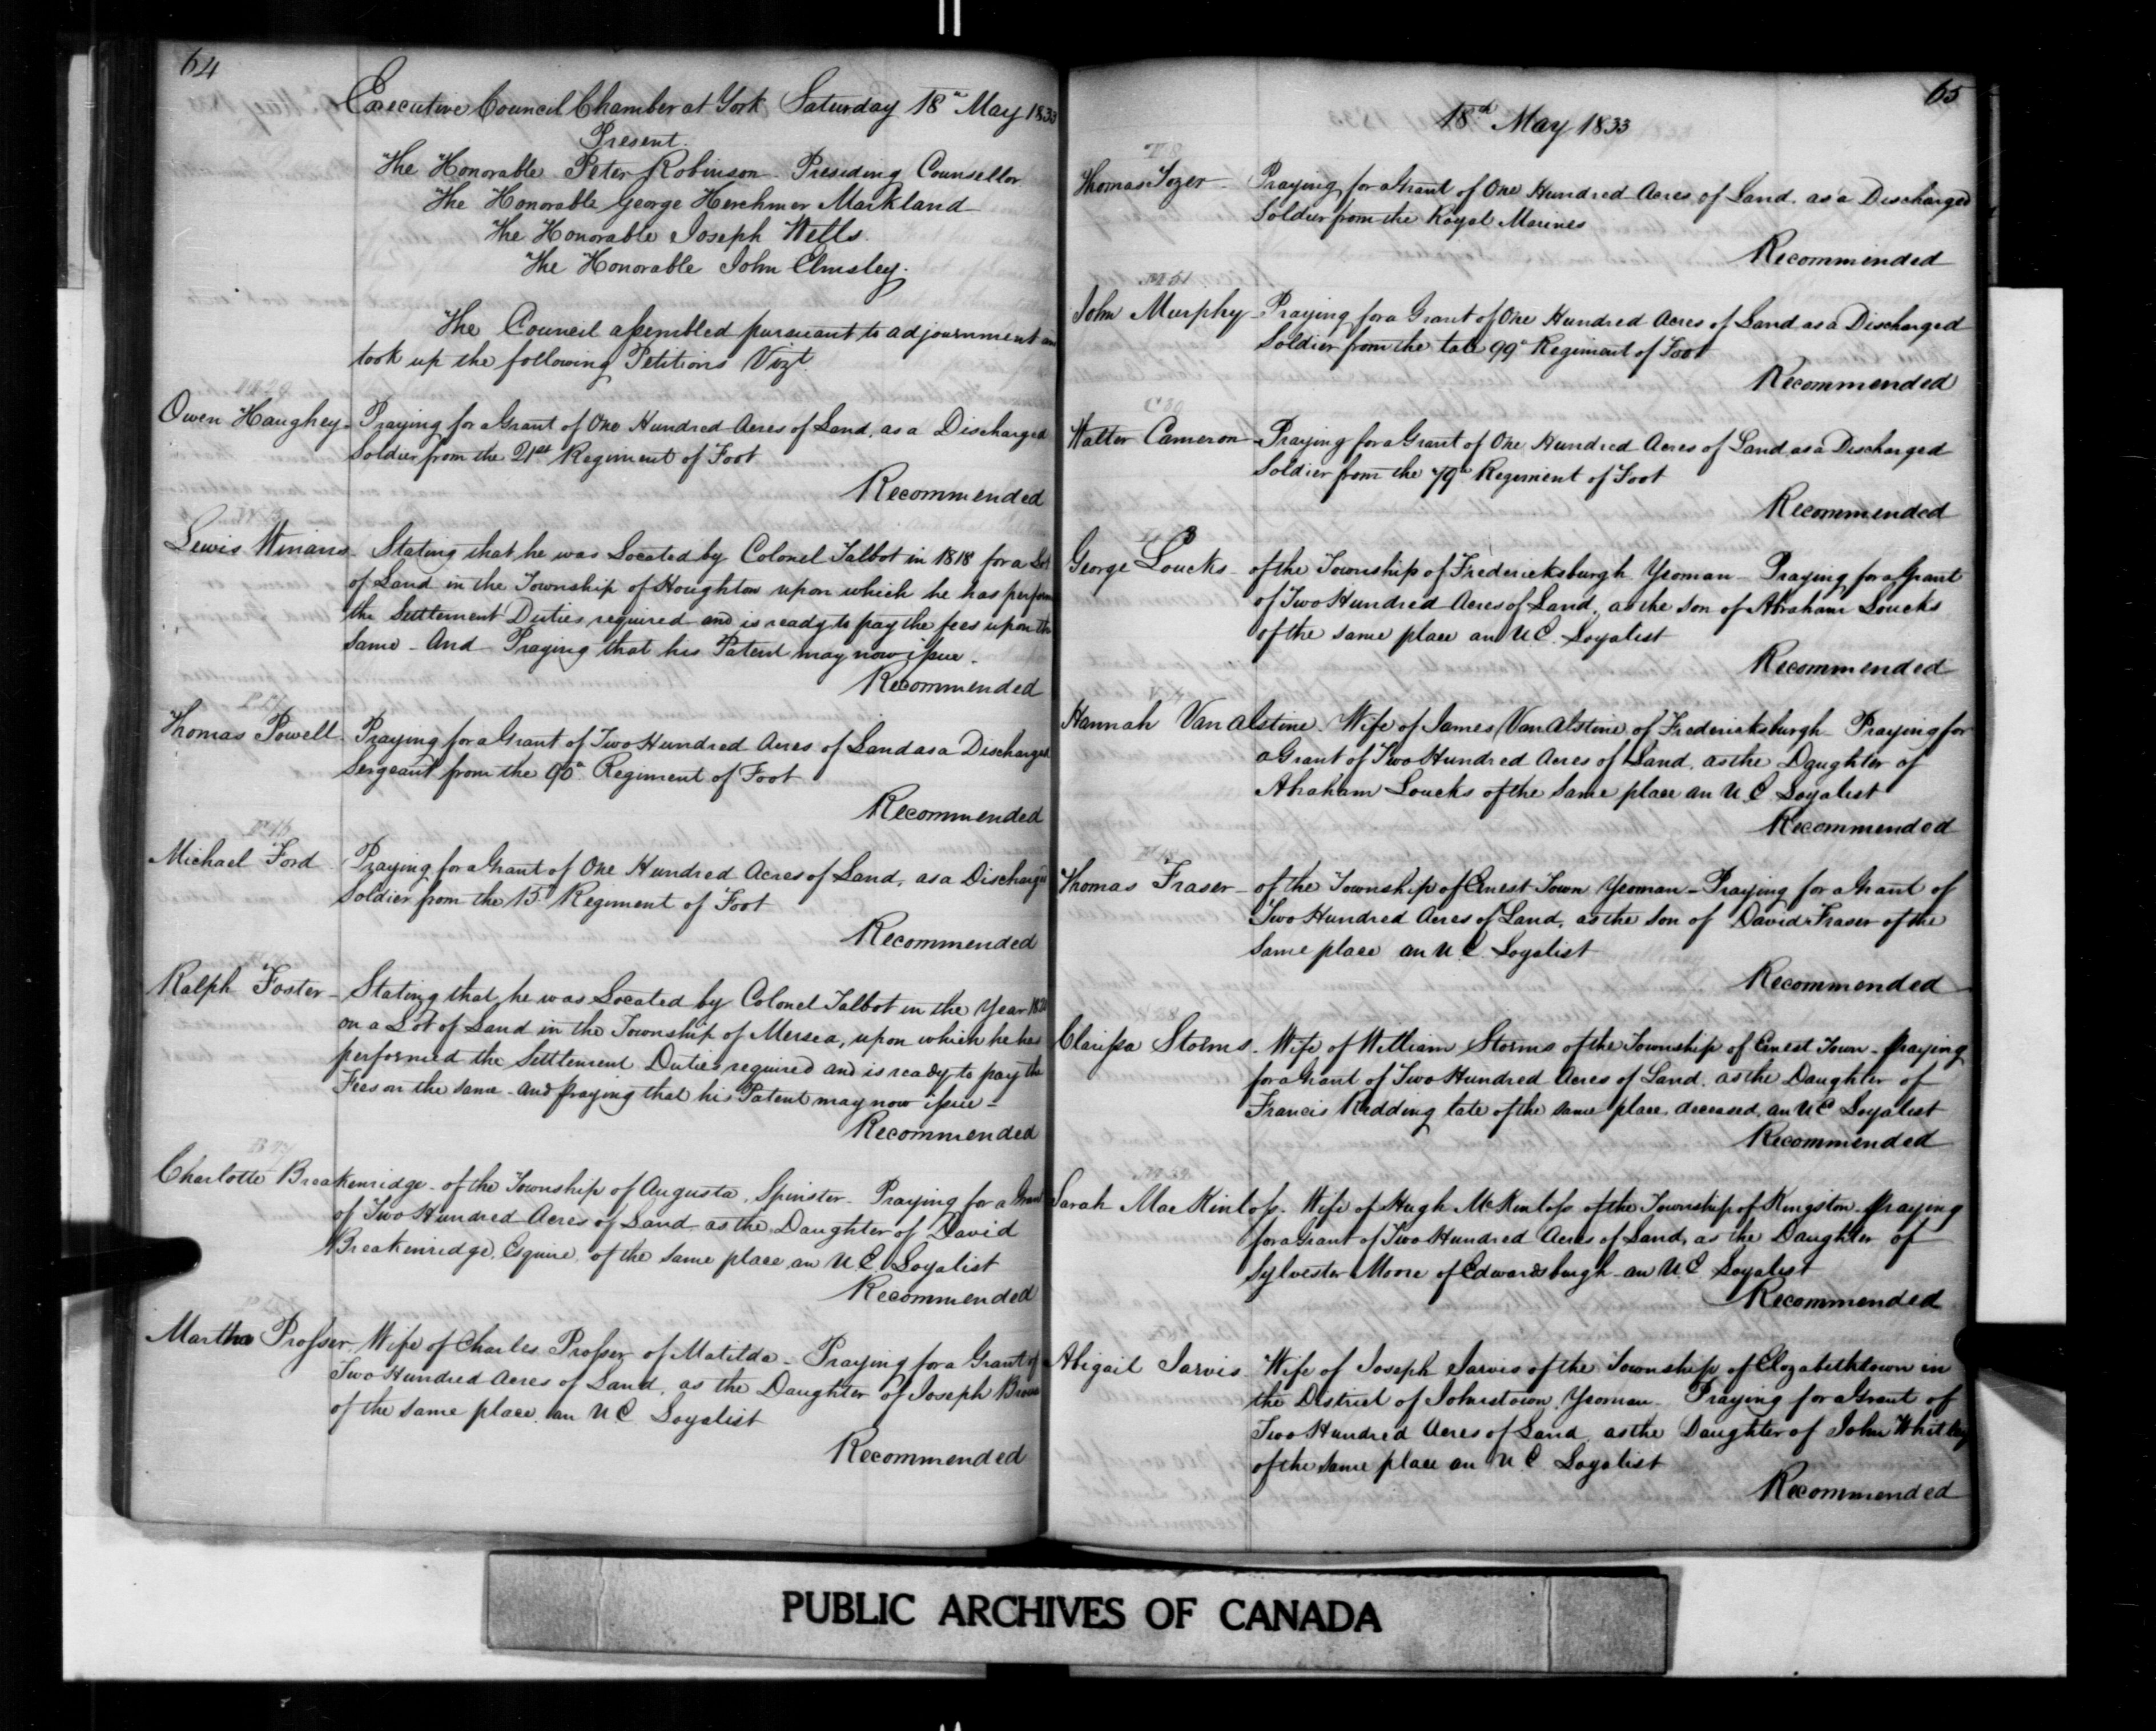 64
Executive Council Chamber at York Saturday 18th May 1833
Present.
The Honorable Peter Robinson - Presiding Counsellor
The Honorable George Herchmer Markland
The Honorable Joseph Wells.
The Honorable John Elmsley.
The Council assembled pursuant to adjournment
took up the following Petitions Vizt
Owen Haughey - Praying for a Grant of One Hundred Acres of Land, as a Discharged
Soldier from the 21st Regiment of Foot
Recommended
Lewis Winans - Stating that he was Located by Colonel Talbot in 1818 for a Lot
of Land in the Township of Houghton upon which he has
the Settlement Duties required and is ready to pay the fees upon the
same - And Praying that his Patent may now issue -
Recommended
Thomas Powell - Praying for a Grant of Two Hundred Acres of Land as a Discharged
Sergeant from the 90th Regiment of Foot
Recommended
Michael Ford Praying for a Grant of One Hundred Acres of Land, as a Discharged
Soldier from the 15th Regiment of Foot
Recommended
Ralph Foster - Stating that he was Located by Colonel Talbot in the Year
on a Lot of Land in the Township of Mersea, upon which he has
performed the Settlement Duties required and is ready to pay the
Fees on the same - and praying that his Patent may now issue -
Recommended
Charlotte Breakenridge - of the Township of Augusta, Spinster - Praying for a Grant
of Two Hundred Acres of Land as the Daughter of David
Breakenridge, Esquire, of the same place, an U.E. Loyalist
Recommended
Martha Prosser - Wife of Charles Prosser of Matilda - Praying for a Grant of
Two Hundred Acres of Land, as the Daughter of Joseph
of the same place, an U.E. Loyalist
Recommended
65
18th May 1833
Thomas Tozer - Praying for a Grant of One Hundred Acres of Land, as a Discharged
Soldier from the Royal Marines
Recommended
M 51
John Murphy - Praying for a Grant of One Hundred Acres of Land as a Discharged
Soldier from the late 99th Regiment of Foot
Recommended
Walter Cameron - Praying for a Grant of One Hundred Acres of Land as a Discharged
Soldier from the 79th Regiment of Foot
Recommended
George Loucks - of the Township of Fredericksburgh Yeoman - Praying for a Grant
of Two Hundred Acres of Land, as the Son of Abraham Loucks
of the same place an U.E. Loyalist
Recommended
Hannah Van Alstine - Wife of James Van Alstine of Fredericksburgh - Praying for
a Grant of Two Hundred Acres of Land, as the Daughter of
Abraham Loucks of the same place an U.E. Loyalist
Recommended
Thomas Fraser - of the Township of Ernest Town Yeoman - Praying for a Grant of
Two Hundred Acres of Land, as the Son of David Fraser of the
same place an U.E. Loyalist
Recommended
Clarissa Storms - Wife of William Storms of the Township of Ernest Town - praying
for a Grant of Two Hundred Acres of Land, as the Daughter of
Francis Redding late of the same place, deceased, an U.E. Loyalist
Recommended
Sarah MacKintoss - Wife of Hugh McKintoss of the Township of Kingston - praying
for a Grant of Two Hundred Acres of Land, as the Daughter of
Sylvester Moore of Edwardsburgh an U.E. Loyalist
Recommended
Abigail Jarvis - Wife of Joseph Jarvis of the Township of Elizabethtown in
the District of Johnstown, Yeoman - Praying for a Grant of
Two Hundred Acres of Land, as the Daughter of John
of the same place an U.E. Loyalist
Recommended
PUBLIC ARCHIVES OF CANADA